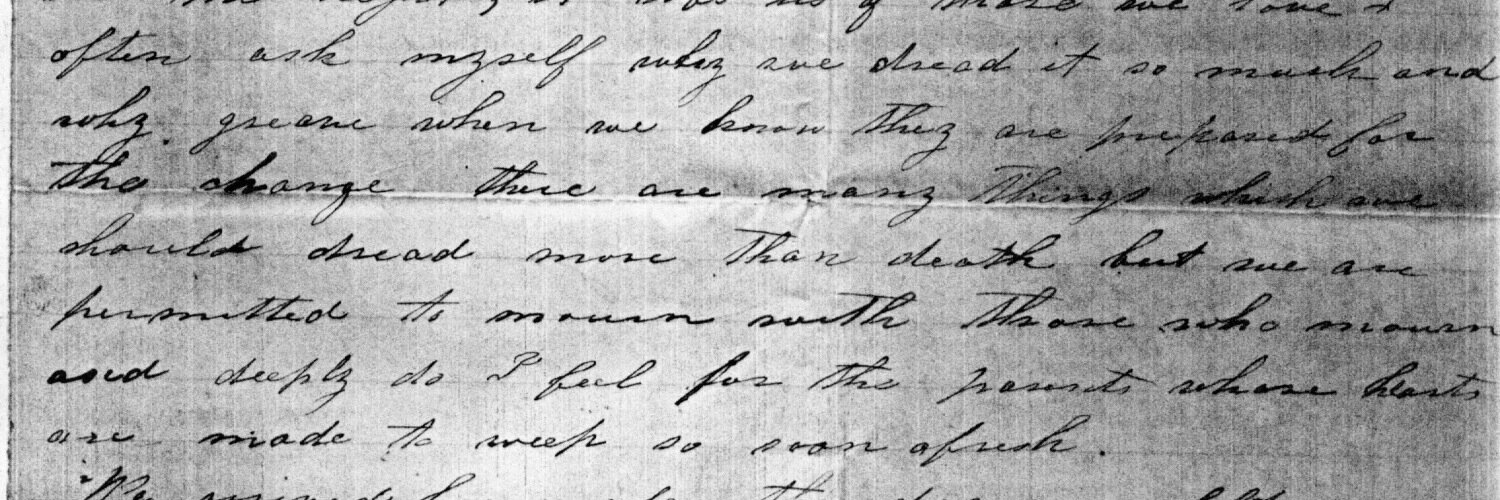 of those we love &
often ask myself why we dread it so much and
why greave when we know they are prepared for
the change there are many things which we
should dread more than death but we are
permitted to mourn with those who mourn
and deeply do I feel for the parents whose hearts
are made to weep so soon afresh.
We